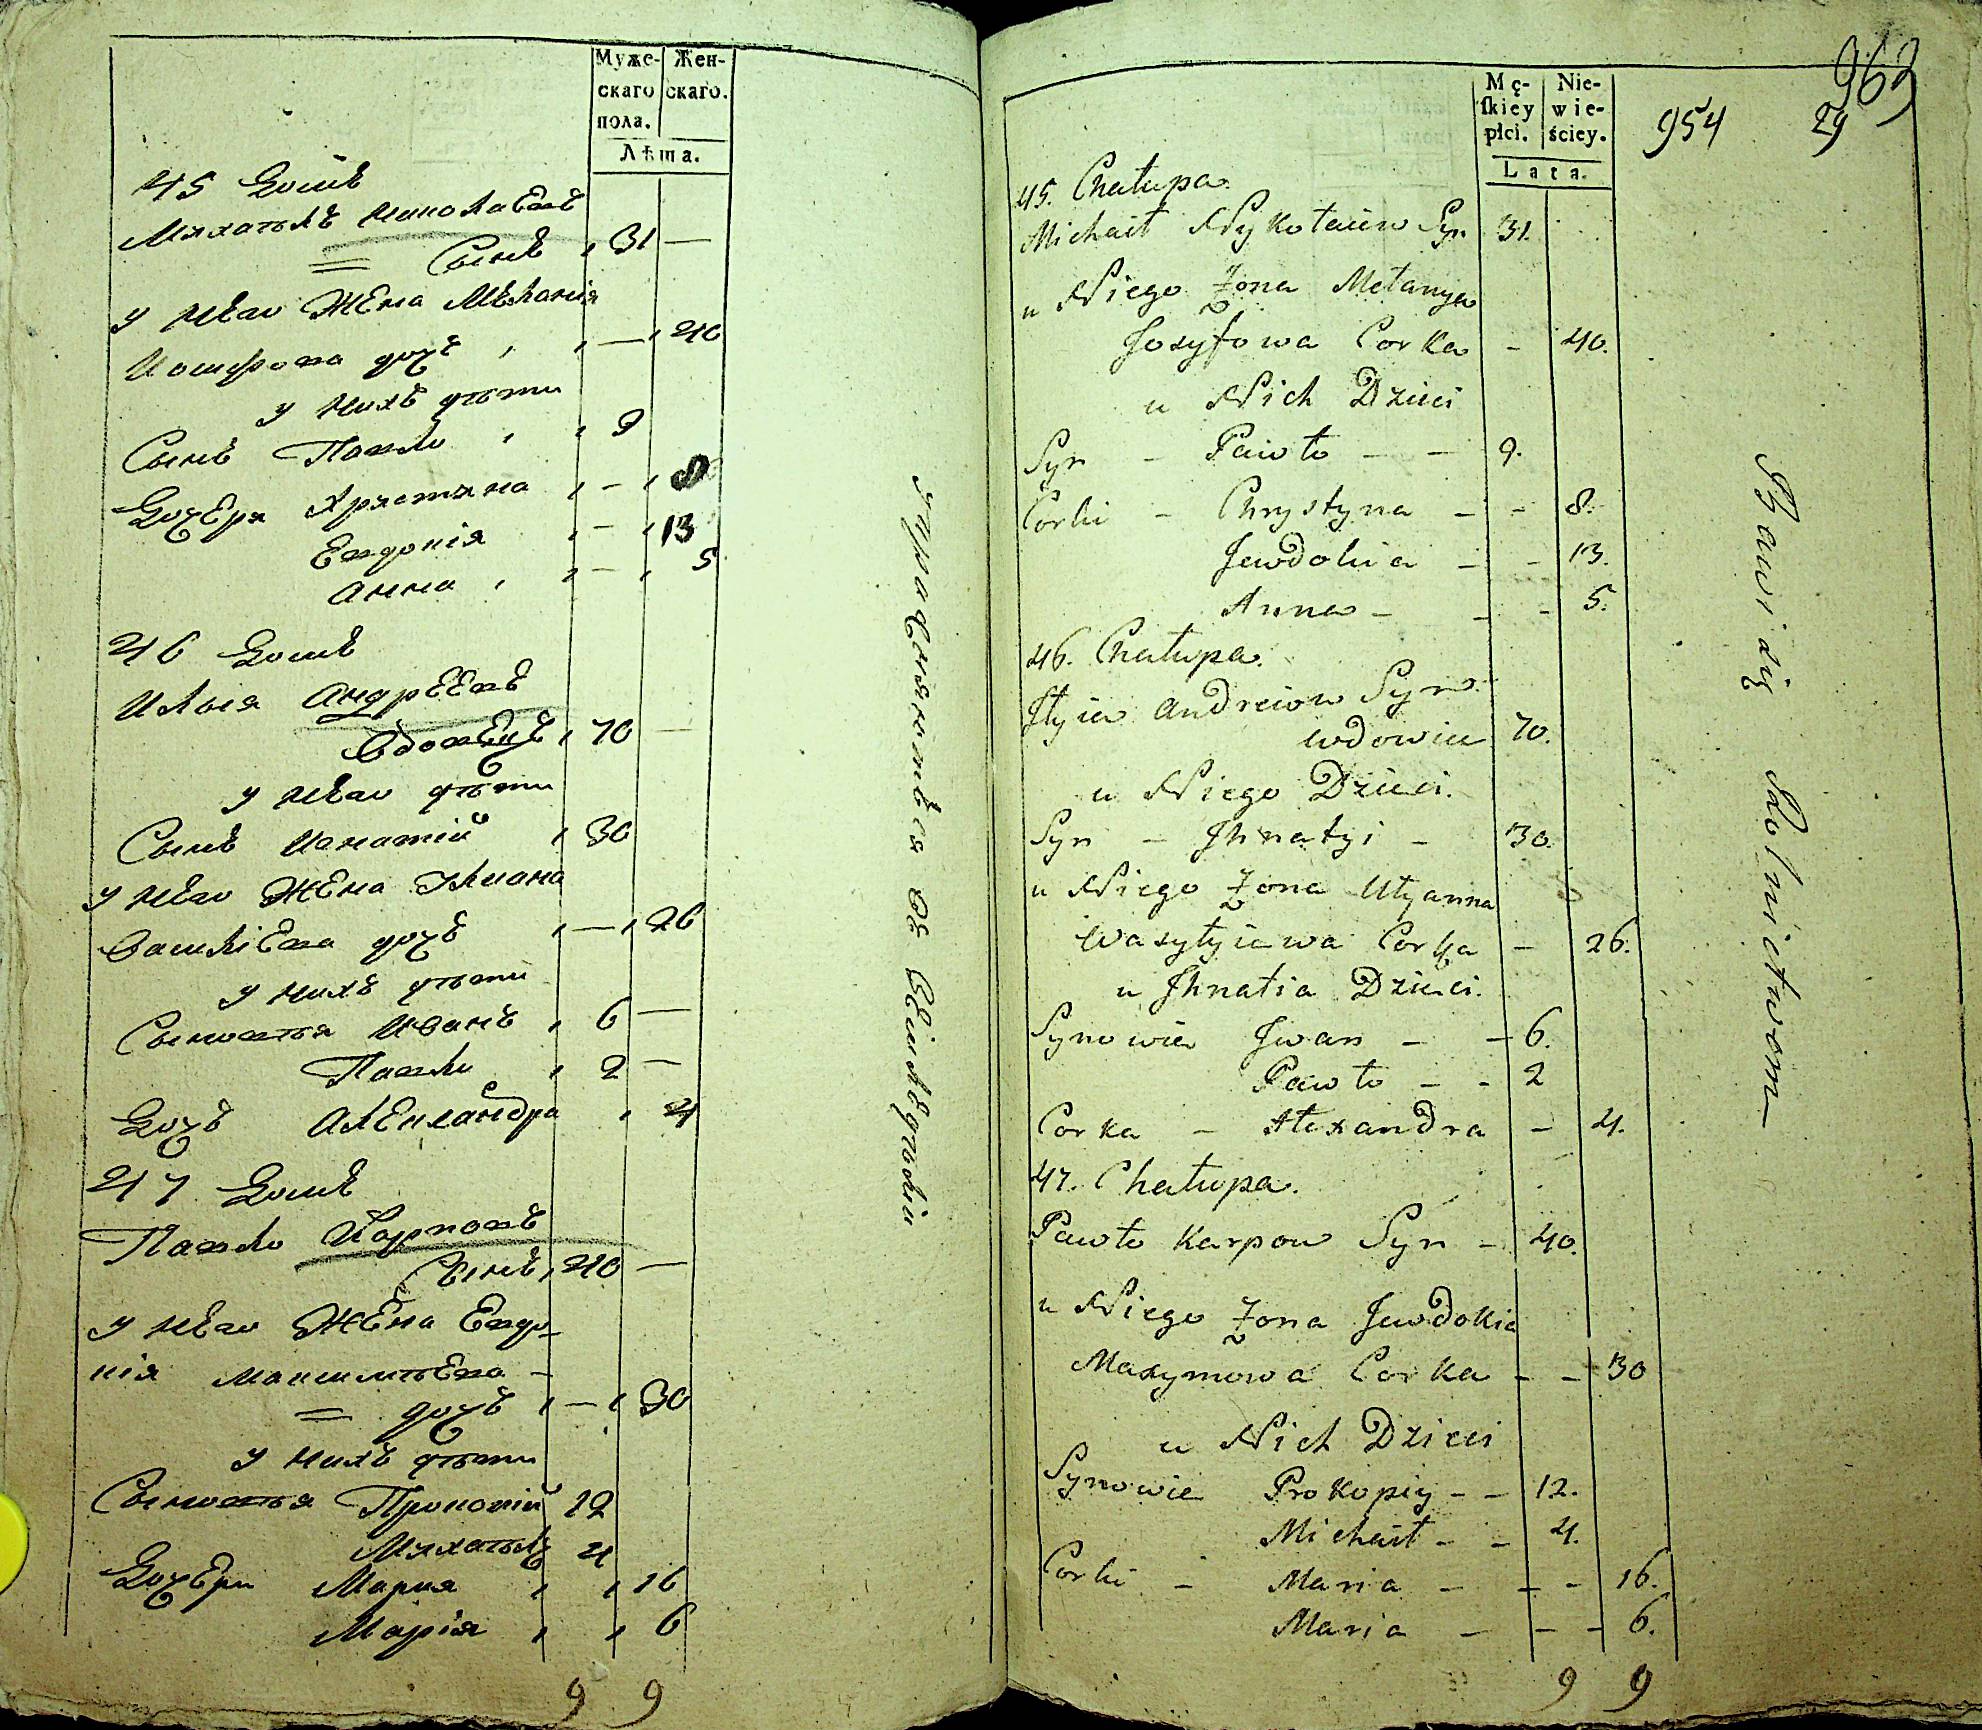 Муже- Жен-
скаго скаго.
пола.
Лѣта.
45 Домъ
Михаилъ Николаевъ
Сынъ 31 —
у него Жена Меланія
Иосифова дочь — 40
у нихъ дѣти
Сынъ Павло 9
Дочери Христина — 8
Евдокія — 13
Анна — 5
46 Домъ
Илья Андреевъ
Вдовецъ 70 —
у него дѣти
Сынъ Игнатій 30
у него Жена Улиана
Василіева дочь — 26
у нихъ дѣти
Сыновья Иванъ 6 —
Павло 2 —
Дочь Александра 4
47 Домъ
Павло Карповъ
Сынъ 40 —
у него Жена Евдо-
кія Максимова —
дочь — 30
у нихъ дѣти
Сыновья Прокопій 12
Михаилъ 4
Дочери Мария 16
Марія 6
9 9
упражняются въ Земледѣліи
963
954 29
Mę- Nie-
ſkiey wie-
płci. ściey.
Lata.
45. Chałupa.
Michaił Nykołaiów Syn 31.
u Niego Żona Mełanya
Josyfowa Corka - 40.
u Nich Dzieci
Syn - Pawło - - 9.
Corki - Chrystyna - - 8.
Jewdokia - - 13.
Anna - - - 5.
46. Chałupa.
Iłyia Andreiow Syn
wdowiec 70.
u Niego Dzieci.
Syn - Ihnatyi - 30.
u Niego Żona Ulyanna
Wasyłyiewa Corka - 26.
u Ihnatia Dzieci.
Synowie Jwan - - 6.
Pawło - - 2
Corka - Alexandra - 4.
47. Chałupa.
Pawło Karpow Syn - 40.
u Niego Żona Jewdokia
Maxymowa Corka - - 30
u Nich Dzieci
Synowie Prokopiy - - 12.
Michaił - - 4.
Corki - Maria - - - 16.
Maria - - - 6.
9 9
Bawi się Rolnictwom